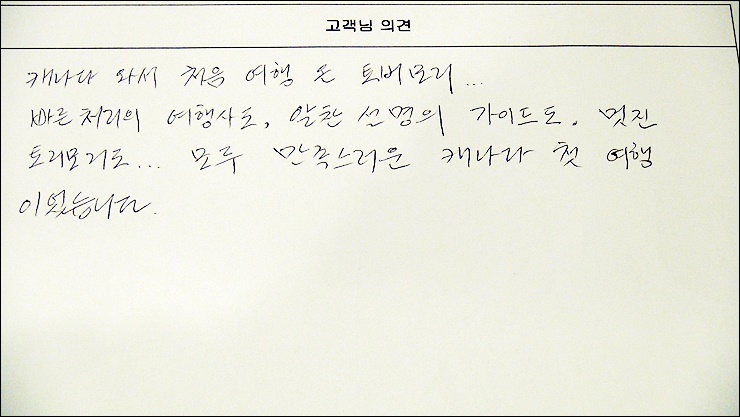 고객님 의견
캐나다 와서 처음 여행 온 토버모리...
빠른처리의 여행사도, 알찬 설명의 가이드도, 멋진
토리모리도... 모두 만족스러운 캐나다 첫 여행
이었습니다.